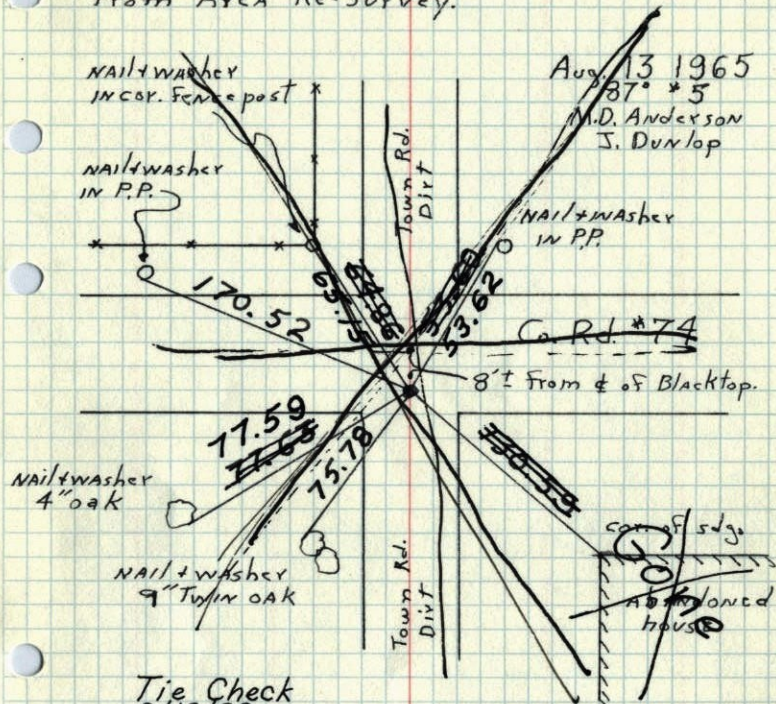 From Area Re-survey.
Aug. 13 1965
87° #5
M.D. Anderson
J. Dunlop
Nail + washer
in cor. fence post
Nail + washer
in P.P.
Town Rd.
Dirt
Nail + washer
in P.P.
170.52
65.15
64.86
53.62
Co. Rd. #74
8'± From ℄ of Blacktop.
77.59
77.63
75.78
130.59
Nail + washer
4" oak
Nail + washer
9" Twin oak
Town Rd.
Dirt
cor. of sdg.
Gone
Abandoned
house
Tie Check